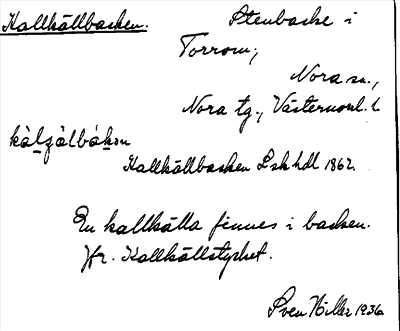 Kallkällbacken.
Stenbacke i
Torrom,
Nora sn.,
Nora tg., Västernorrl. l
kàlʒálbákən
Kallkällbacken Lskhdl 1862.
En kallkälla finnes i backen.
Jfr. Kallkällstycket.
Sven Hiller 1936